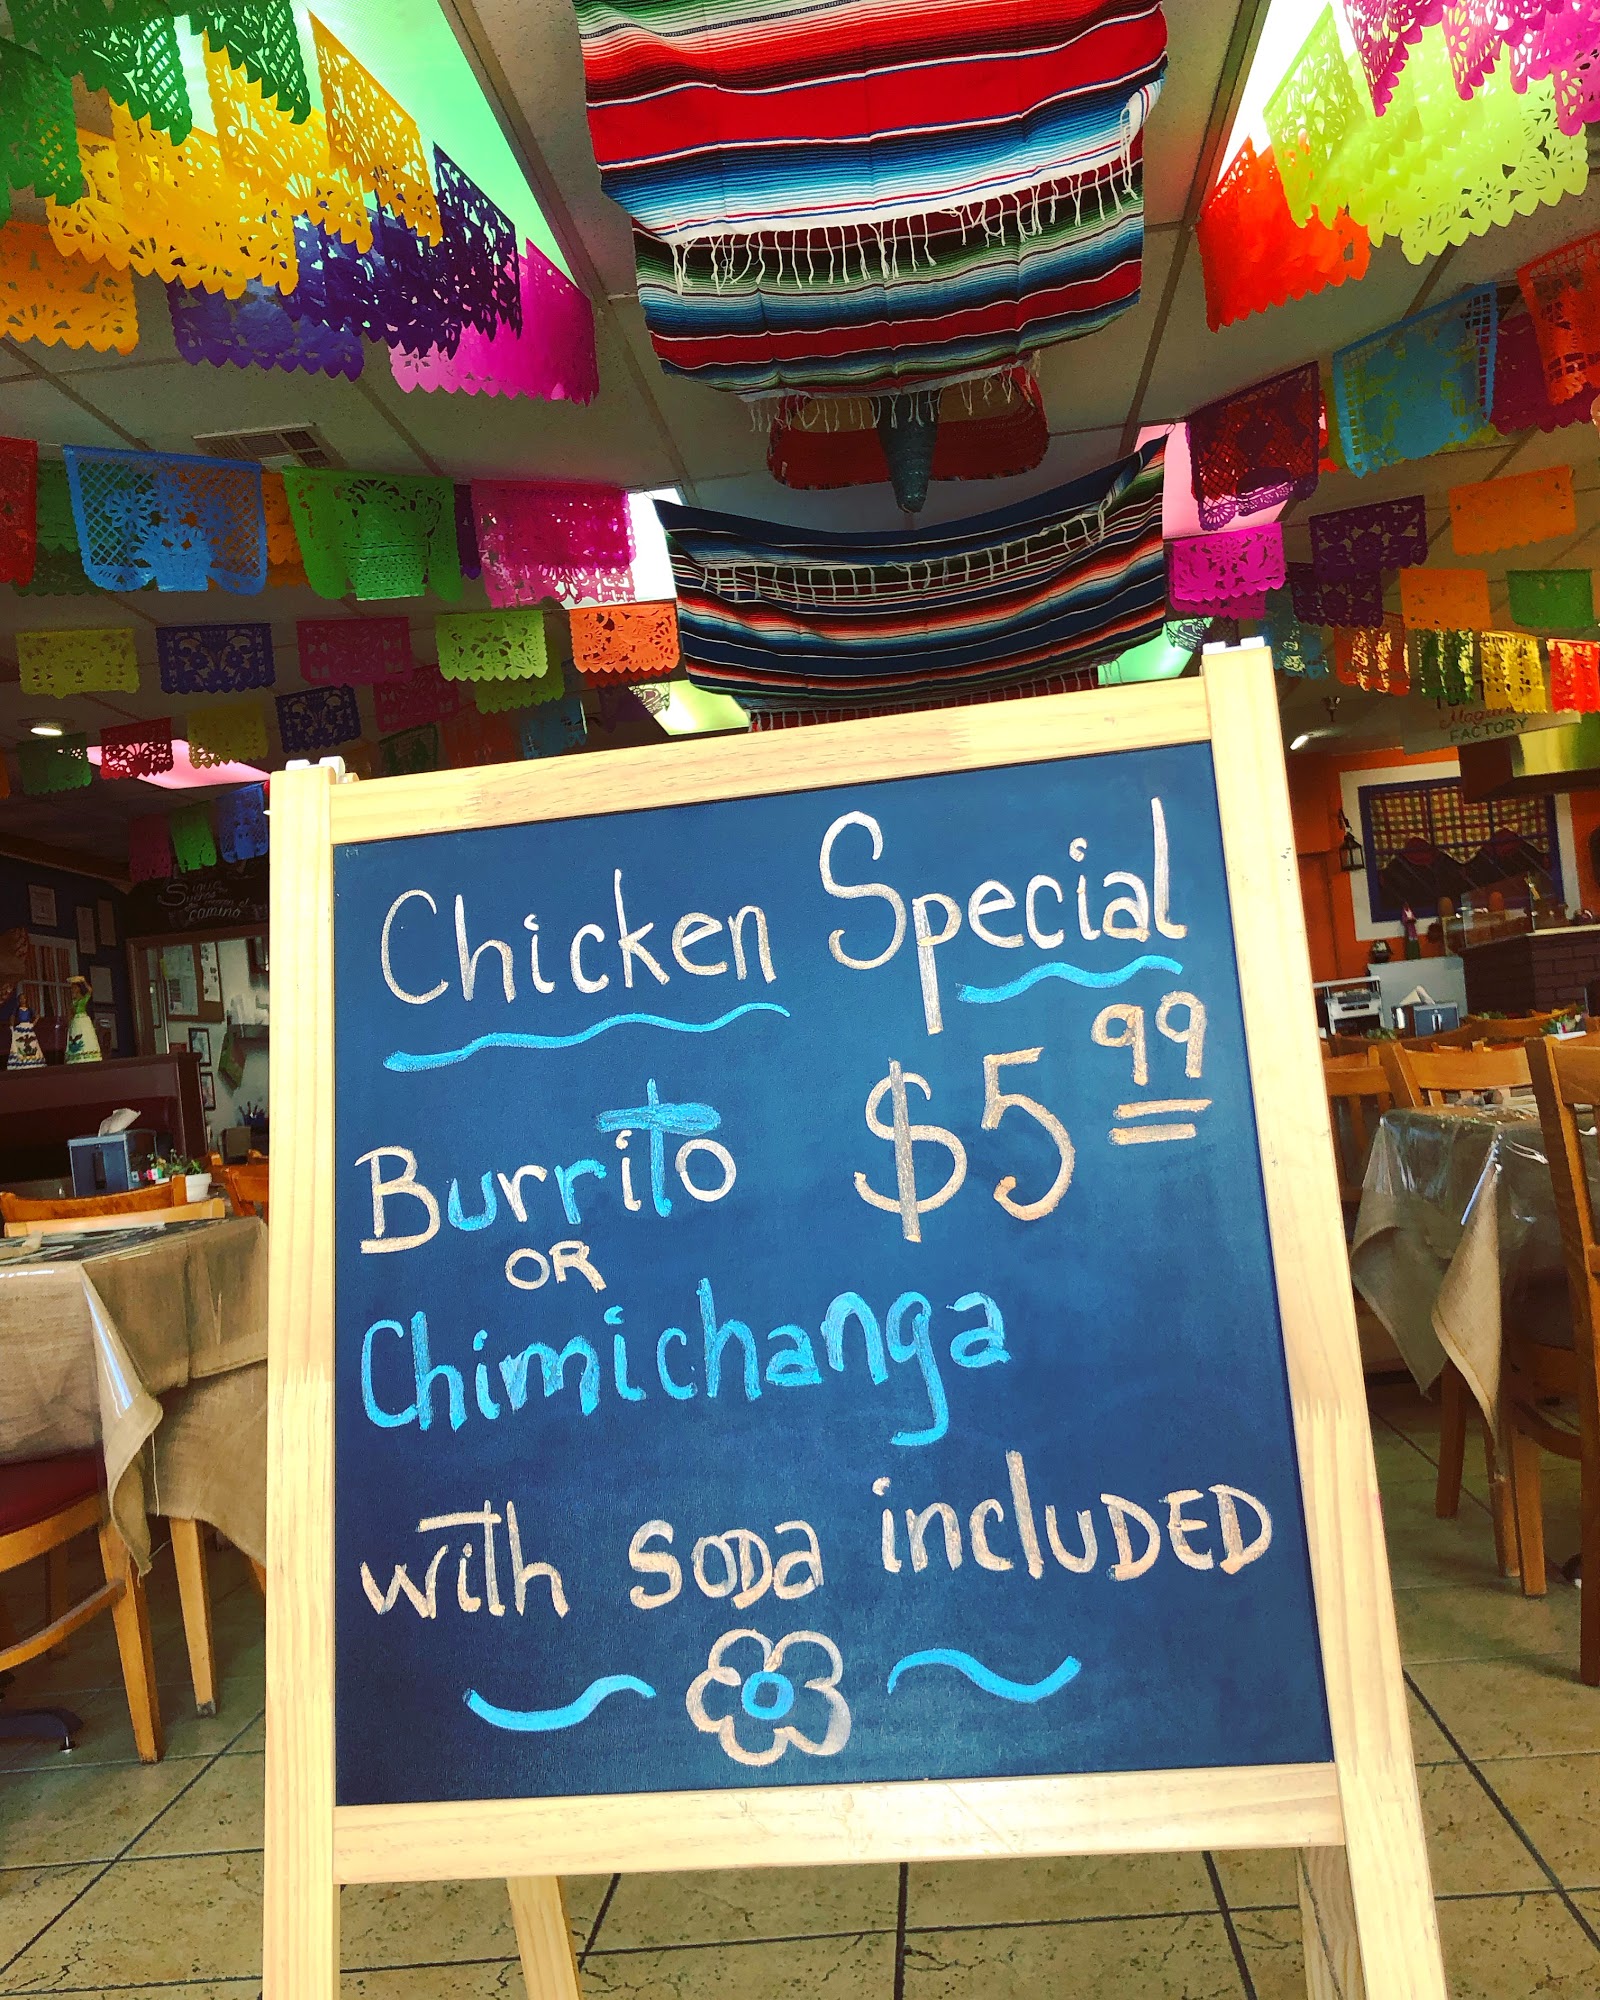 Chicken Special
Burrito $5.99
OR
Chimichanga
with SODa incluDED
FACTORY
camino